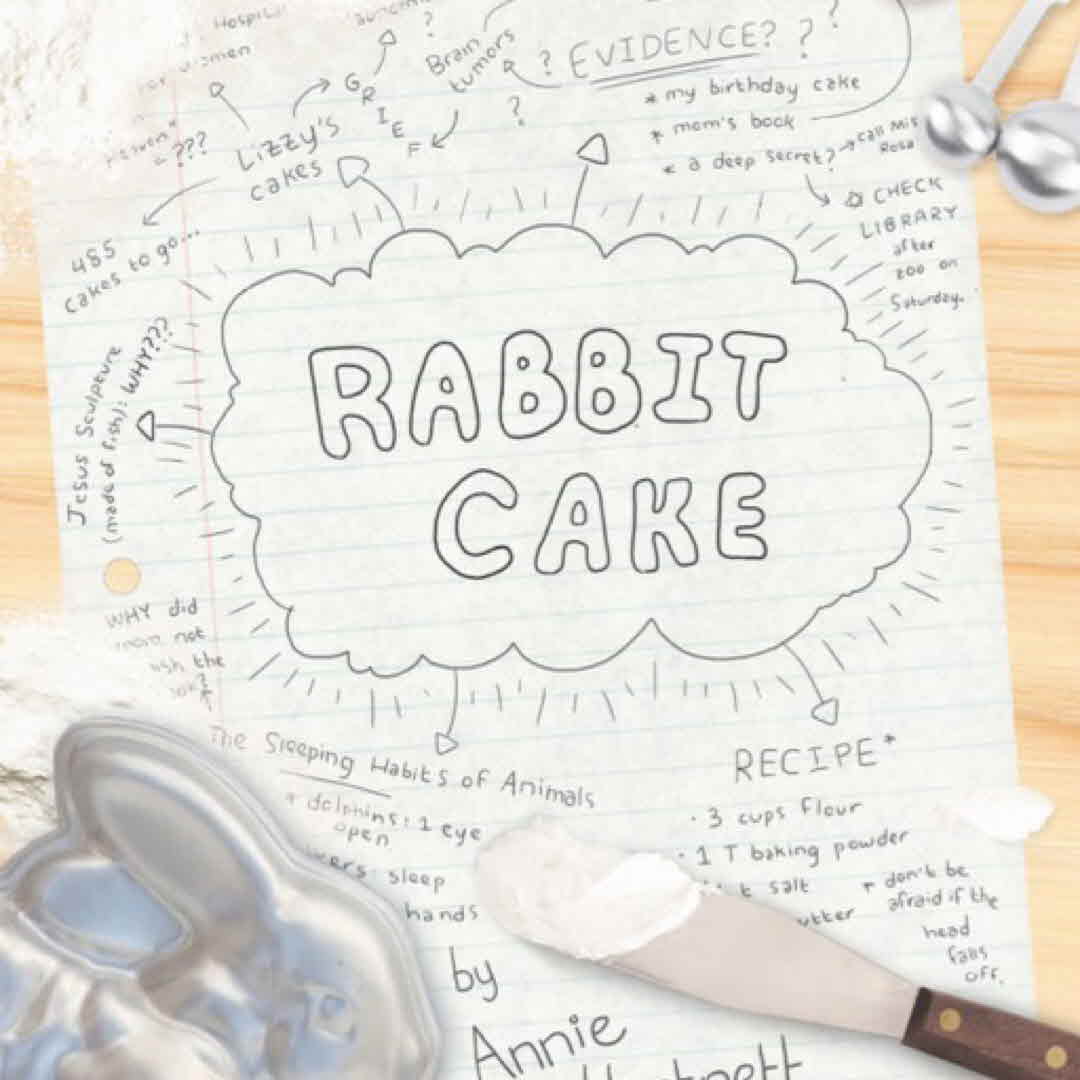 Hospital
women
Brain
tumors
?
? EVIDENCE? ? ?
* my birthday cake
* mom's book
* a deep secret?
call Ms
Rosa
CHECK
LIBRARY
after
zoo on
Saturday.
GRIEF
?
Lizzy's
cakes
???
485
cakes to go...
Jesus Sculpture
(made of fish): WHY???
RABBIT
CAKE
WHY did
mom not
the
The Sleeping Habits of Animals
* dolphins: 1 eye
open
sleep
hands
RECIPE*
· 3 cups flour
· 1 T baking powder
t salt
* don't be
afraid if the
head
falls
off.
by
Annie